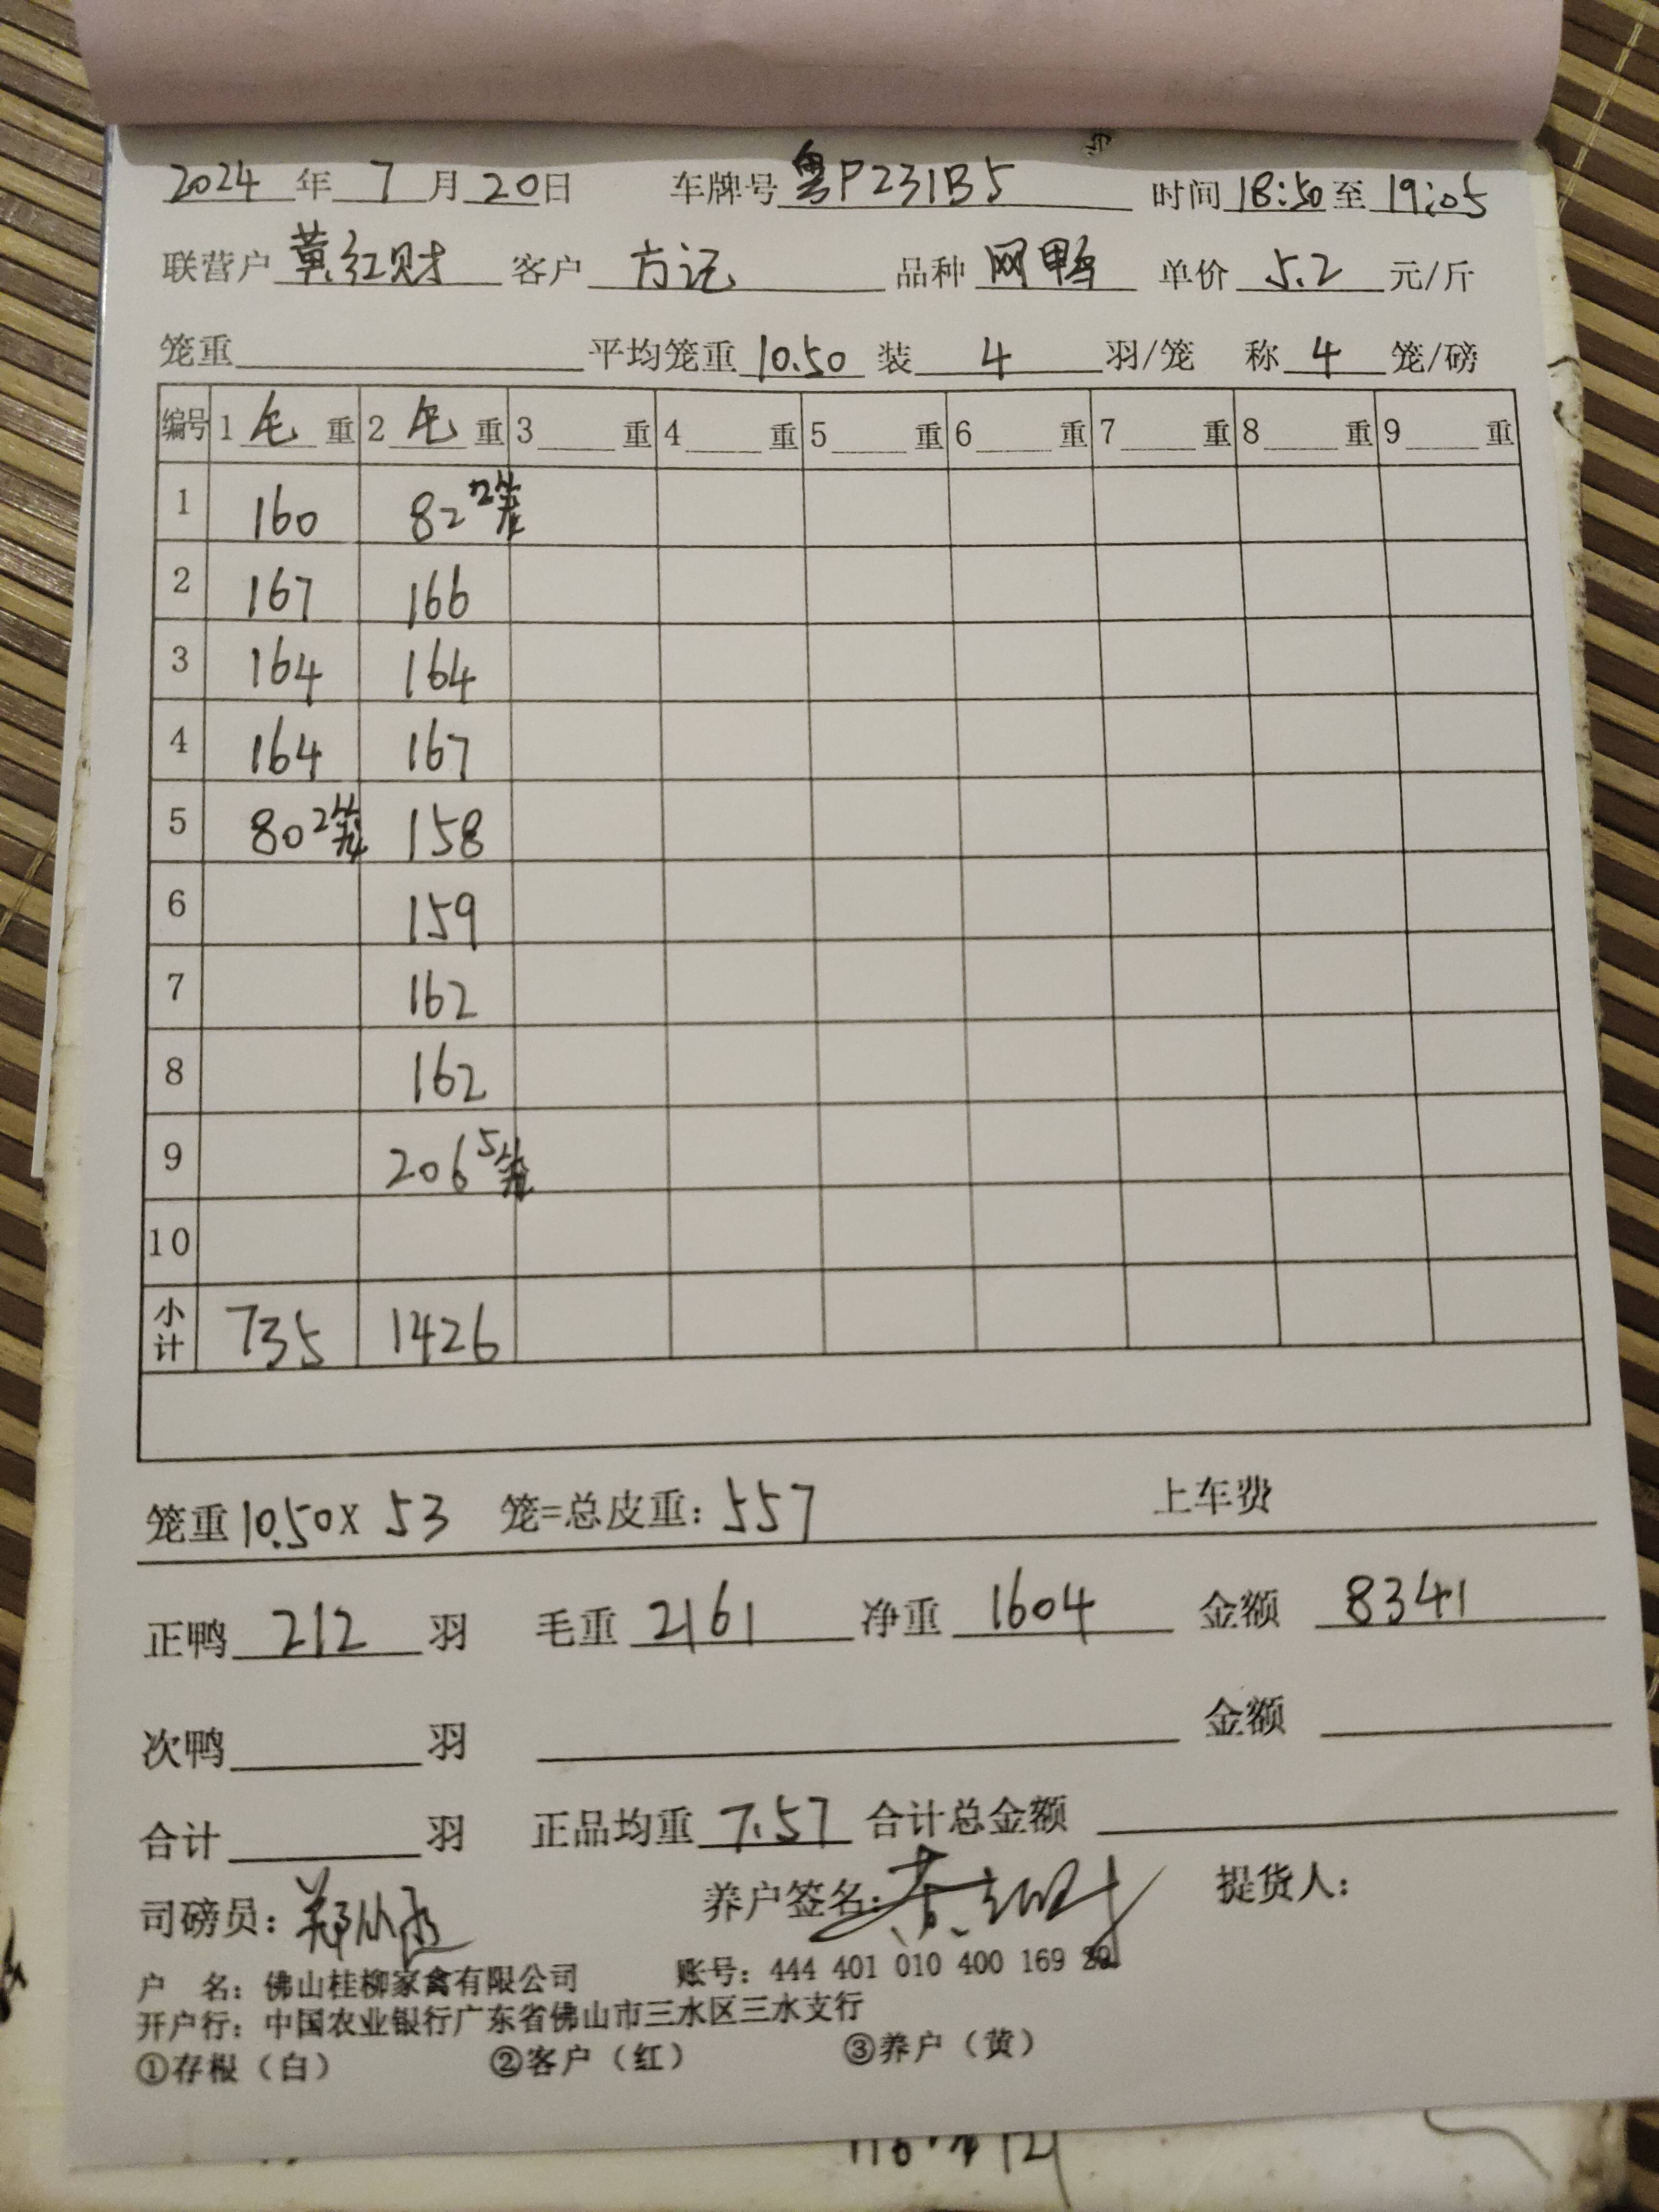 2024 年 7 月 20 日 车牌号 粤P231B5 时间 18:50 至 19:05
联营户 黄红财 客户 方记 品种 网鸭 单价 5.2 元/斤
笼重 平均笼重 10.50 装 4 羽/笼 称 4 笼/磅
编号 1 毛 重 2 毛 重 3 重 4 重 5 重 6 重 7 重 8 重 9 重
1 160 82 2笼
2 167 166
3 164 164
4 164 167
5 80 2笼 158
6 159
7 162
8 162
9 206 5笼
10
小计 735 1426
笼重 10.50 X 53 笼=总皮重: 557 上车费
正鸭 212 羽 毛重 2161 净重 1604 金额 8341
次鸭 羽 金额
合计 羽 正品均重 7.57 合计总金额
司磅员: 养户签名: 提货人:
户 名: 佛山桂柳家禽有限公司 账号: 444 401 010 400 169
开户行: 中国农业银行广东省佛山市三水区三水支行
①存根（白） ②客户（红） ③养户（黄）